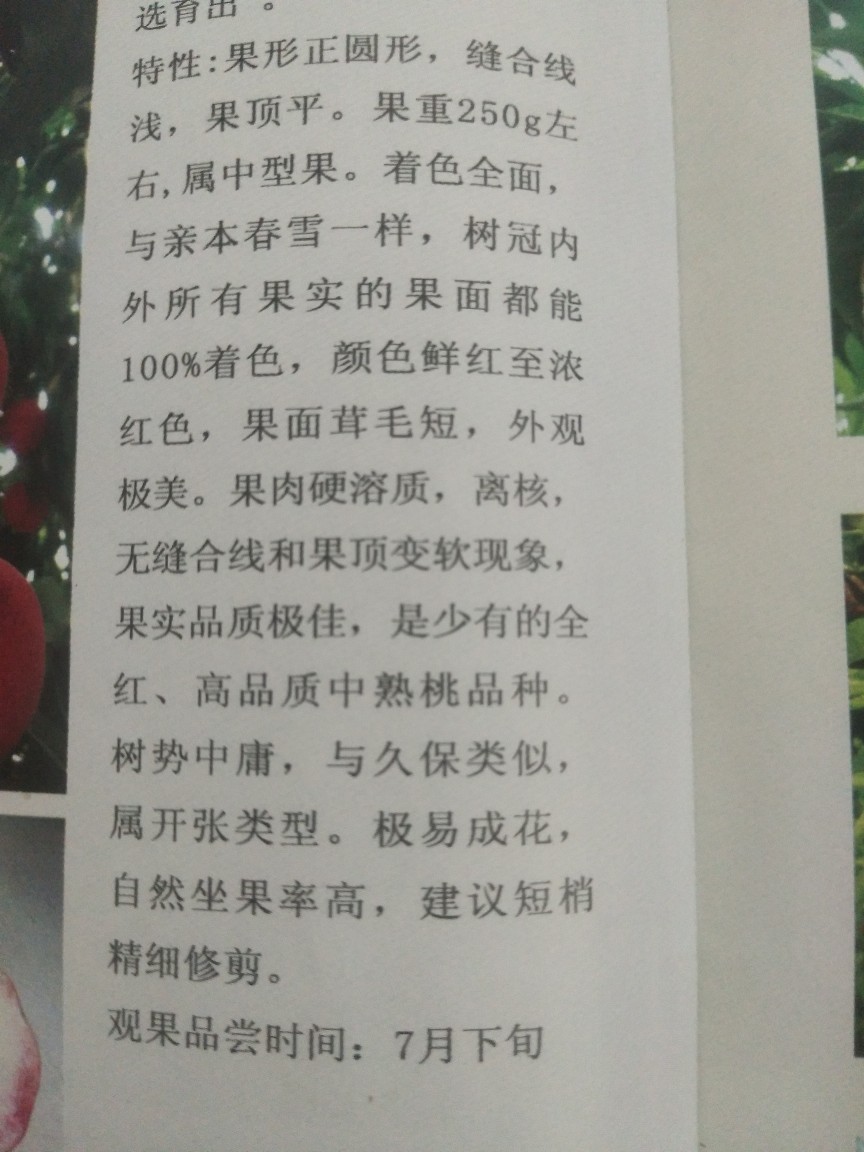 选育出 。
特性:果形正圆形，缝合线
浅，果顶平。果重250g左
右,属中型果。着色全面，
与亲本春雪一样，树冠内
外所有果实的果面都能
100%着色，颜色鲜红至浓
红色，果面茸毛短，外观
极美。果肉硬溶质，离核，
无缝合线和果顶变软现象，
果实品质极佳，是少有的全
红、高品质中熟桃品种。
树势中庸，与久保类似，
属开张类型。极易成花，
自然坐果率高，建议短梢
精细修剪。
观果品尝时间：7月下旬